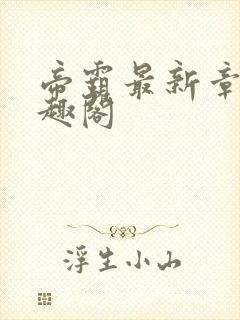 帝霸最新章
趣阁
浮生小山